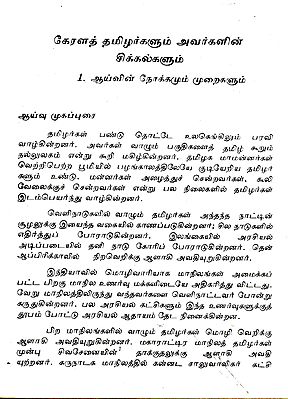 கேரளத் தமிழர்களும் அவர்களின்
சிக்கல்களும்
1. ஆய்வின் நோக்கமும் முறைகளும்
ஆய்வு முகப்புரை
தமிழர்கள் பண்டு தொட்டே உலகெங்கிலும் பரவி
வாழ்கின்றனர். அவர்கள் வாழும் பகுதிகளைத் தமிழ் கூறும்
நல்லுலகம் என்று கூறி மகிழ்கின்றனர். தமிழக மாமன்னர்கள்
வெற்றிபெற்ற பூமியில் பழங்காலத்திலேயே குடியேறிய தமிழர்
களும் உண்டு. மன்னர்கள் அழைத்துச் சென்றவர்கள், கூலி
வேலைக்குச் சென்றவர்கள் என்று பல நிலைகளில் தமிழர்கள்
இடம்பெயர்ந்து வாழ்கின்றனர்.
வெளிநாடுகளில் வாழும் தமிழர்கள் அந்தந்த நாட்டின்
சூழலுக்கு இயைந்த வகையில் காணப்படுகின்றனர்; சில நாடுகளில்
எதிர்த்துப் போராடுகின்றனர். இலங்கையில் அரசியல்
அடிப்படையில் தனி நாடு கோரிப் போராடுகின்றனர். தென்
ஆப்பிரிக்காவில் நிறவெறிக்கு ஆளாகி அவதியுறுகின்றனர்.
இந்தியாவில் மொழிவாரியாக மாநிலங்கள் அமைக்கப்
பட்ட பிறகு மாநில உணர்வு மக்களிடையே அதிகரித்து விட்டது.
வேறு மாநிலத்திலிருந்து வந்தவர்களை வெளிநாட்டவர் போன்று
கருதுகின்றனர். பல அரசியல் கட்சிகளும் இந்த உணர்வுகளுக்குத்
தூபம் போட்டு அரசியல் ஆதாயம் தேட நினைக்கின்றன.
பிற மாநிலங்களில் வாழும் தமிழர்கள் மொழி வெறிக்கு
ஆளாகி அவதியுறுகின்றனர். மகாராட்டிர மாநிலத் தமிழர்கள்
முன்பு சிவசேனையின் தாக்குதலுக்கு ஆளாகி அவதி
யுற்றனர். கருநாடக மாநிலத்தில் கன்னட சாலுவாலிகர் கட்சி